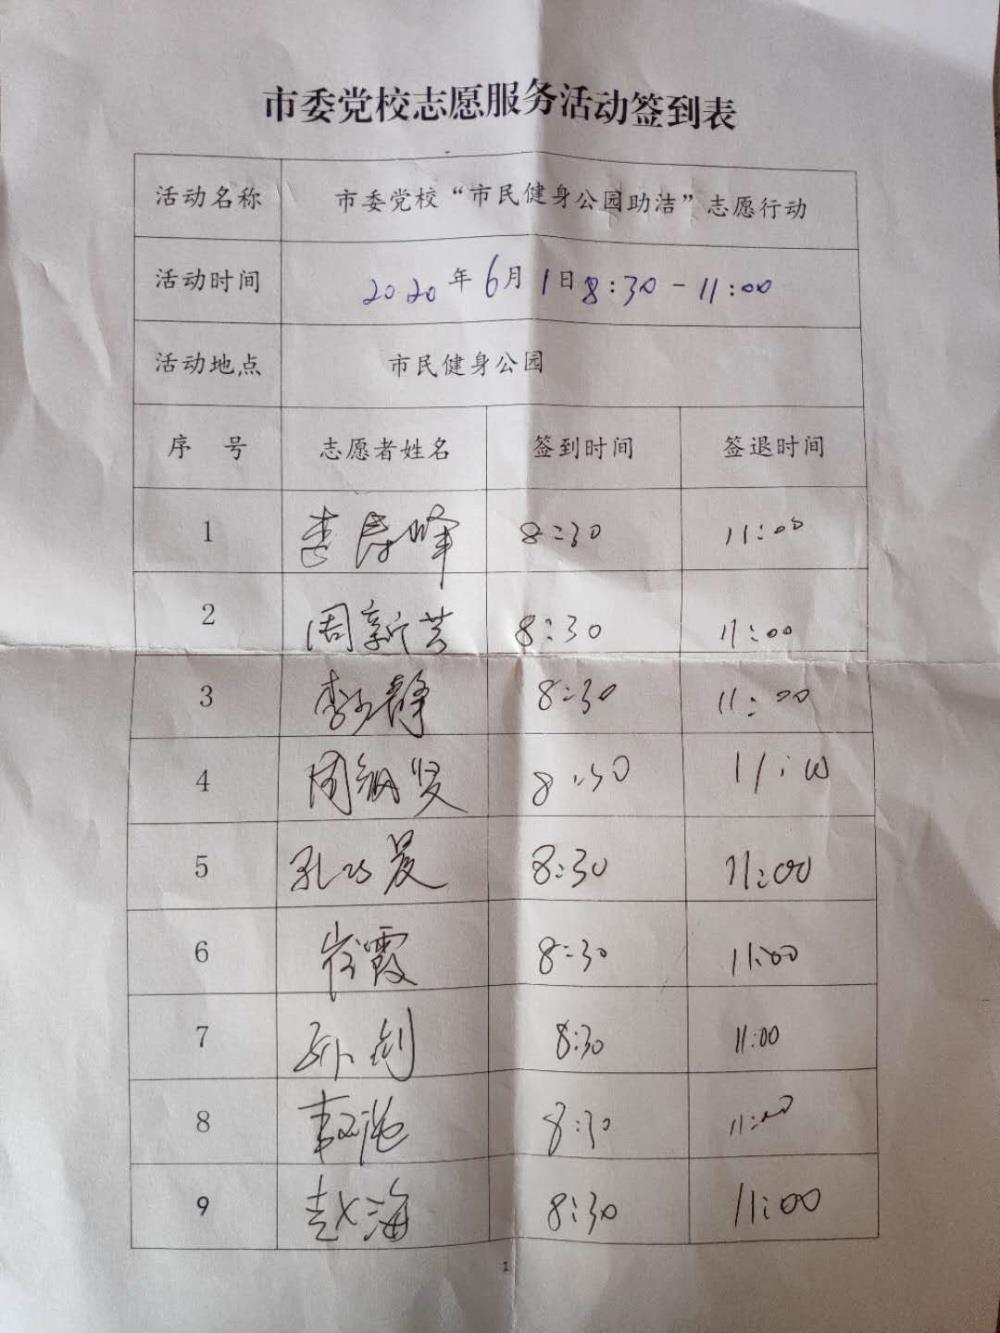 市委党校志愿服务活动签到表
活动名称 市委党校“市民健身公园助洁”志愿行动
活动时间 2020年6月1日8:30-11:00
活动地点 市民健身公园
序 号 志愿者姓名 签到时间 签退时间
1 8:30 11:00
2 周新芳 8:30 11:00
3 8:30 11:00
4 8:30 11:00
5 8:30 11:00
6 崔霞 8:30 11:00
7 孙剑 8:30 11:00
8 8:30 11:00
9 赵海 8:30 11:00
1